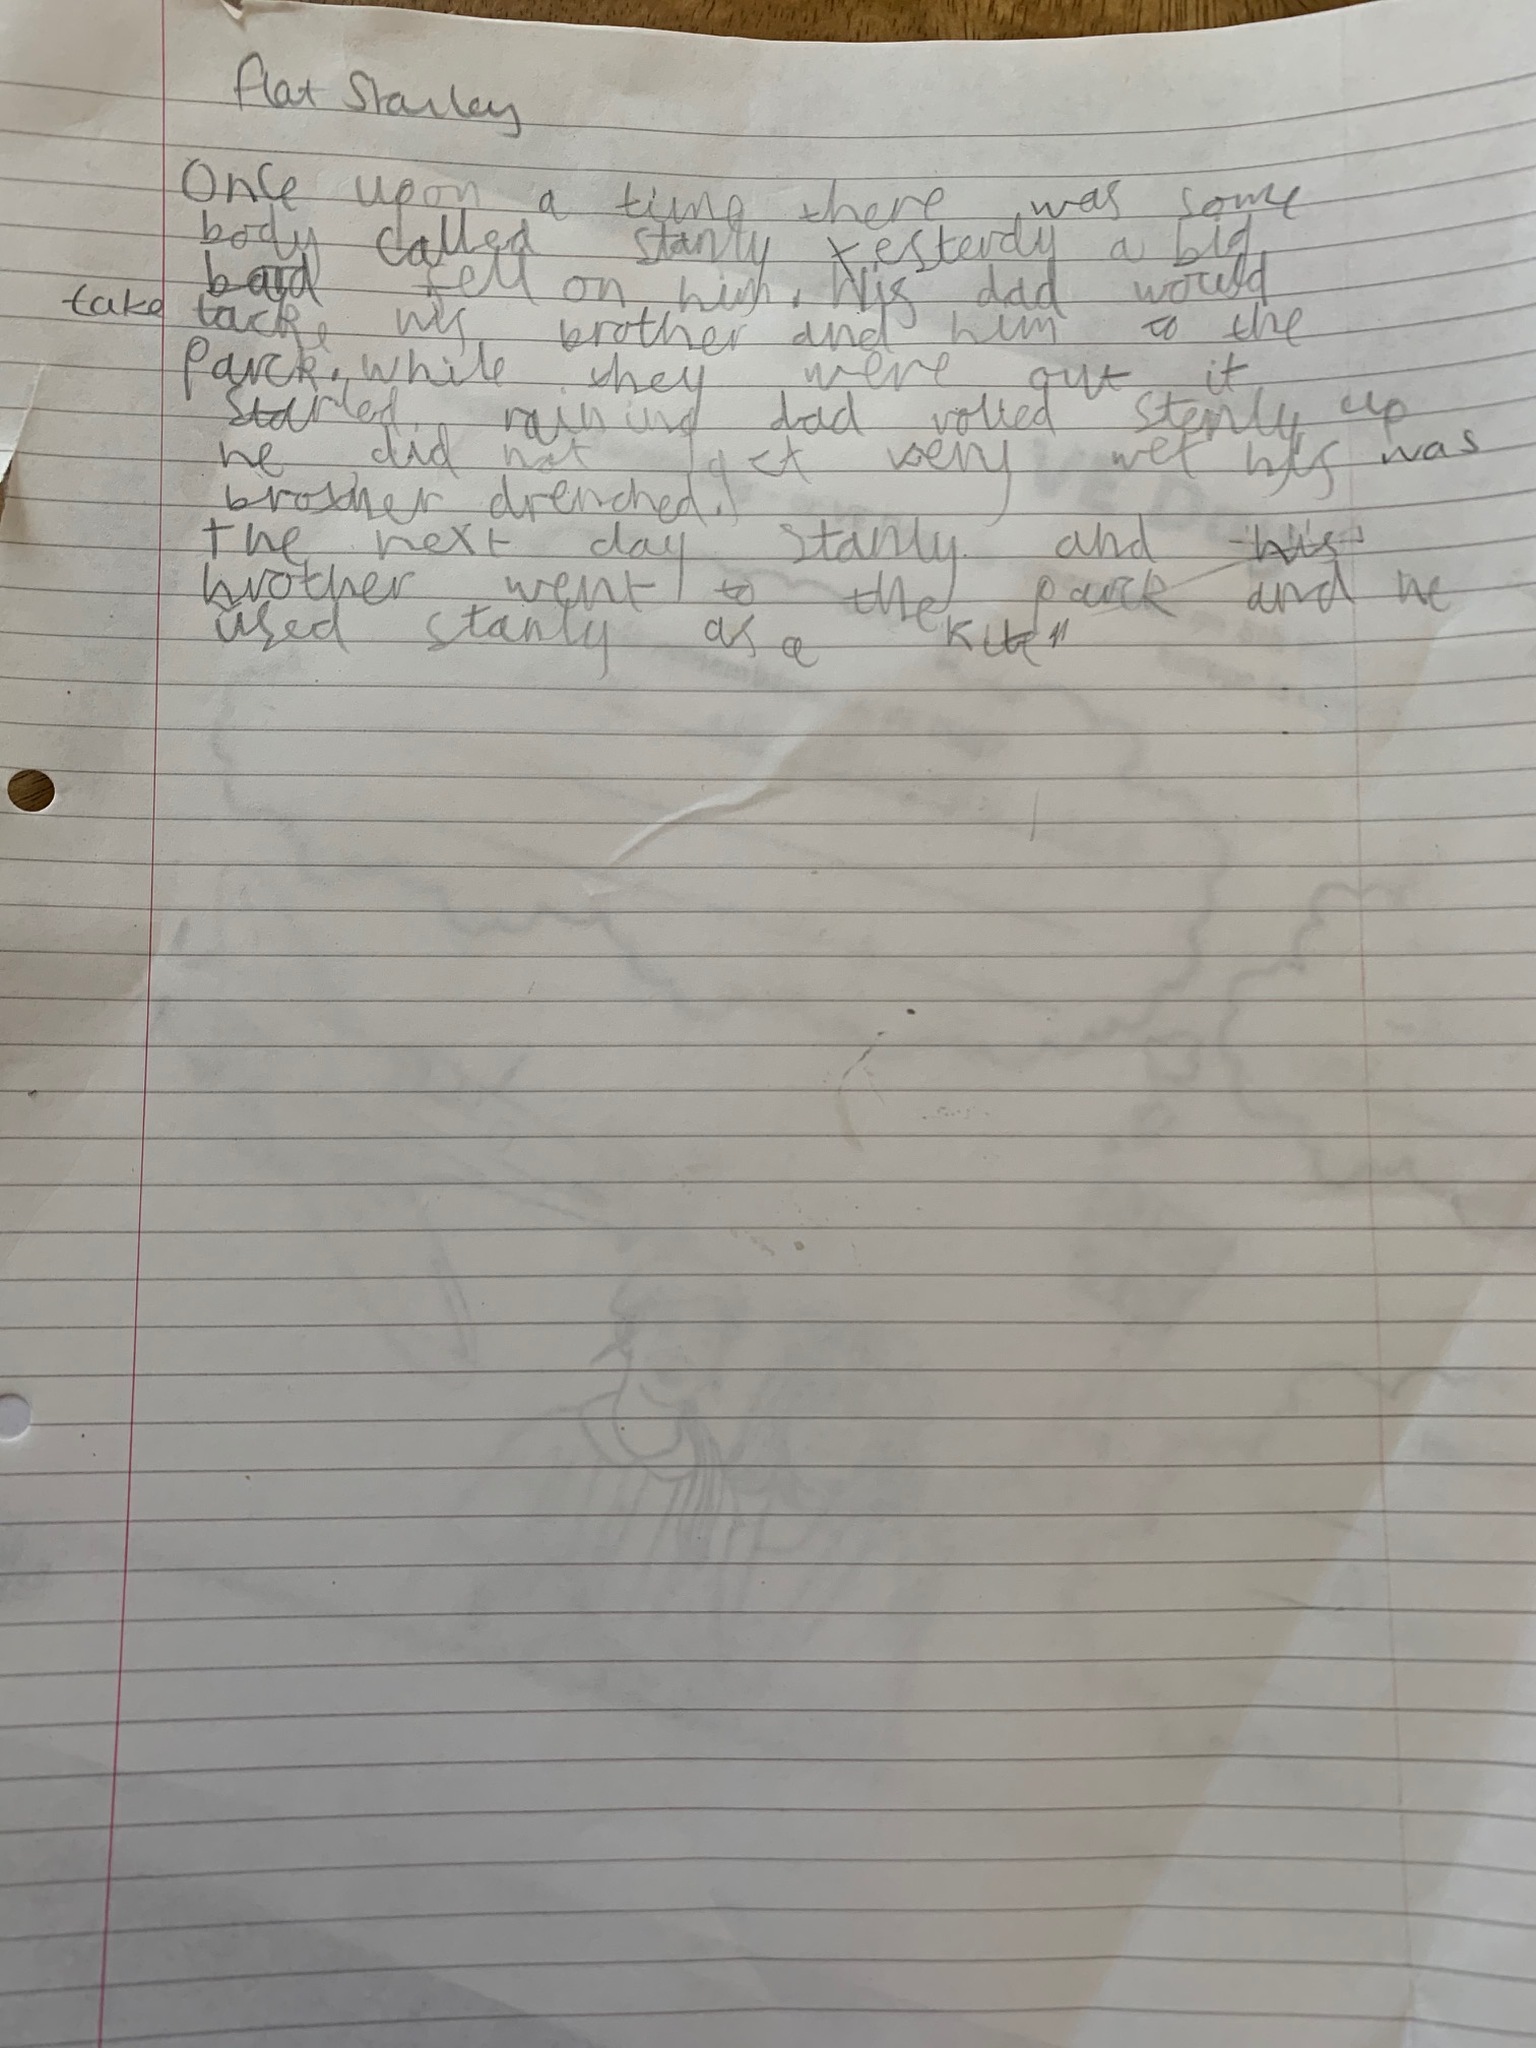 Flat Stanley
Once upon a time there was some
body called Stanly Yesterdy a big
baud fell on him. his dad would
take tacke his brother and him to the
Parck. while they were out it
started raining dad rolled Stanly up
he did not get very wet his was
brother drenched.
The next day Stanly and his
brother went to the parck and he
used stanly as a kite"